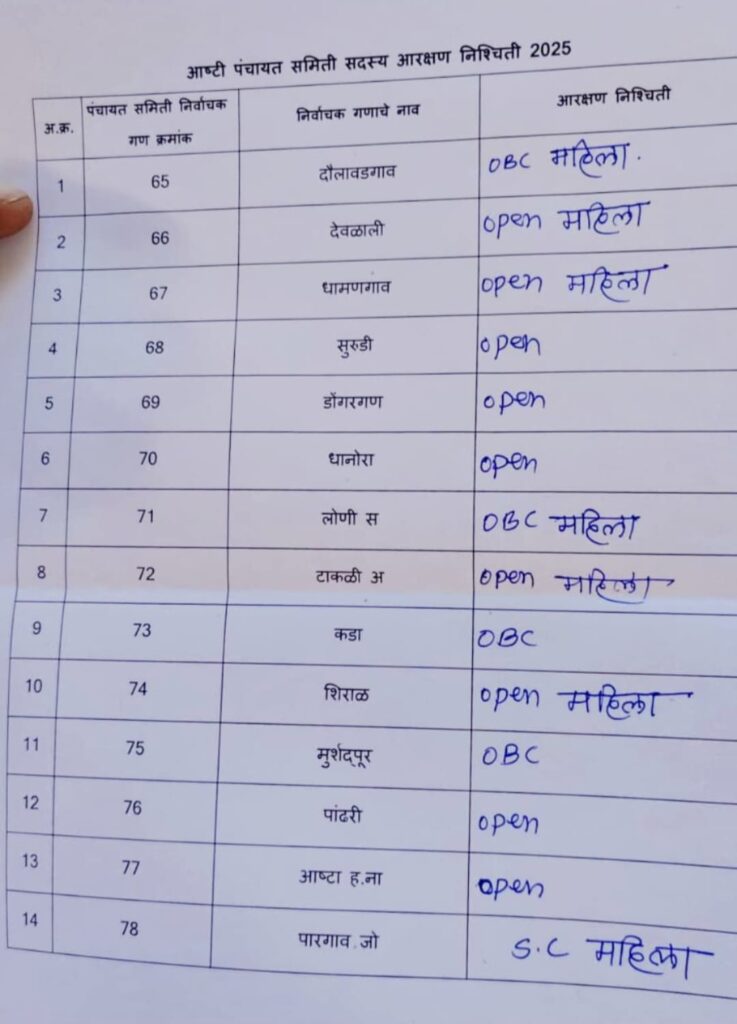 आष्टी पंचायत समिती सदस्य आरक्षण निश्चिती 2025
अ.क्र. पंचायत समिती निर्वाचक गण क्रमांक निर्वाचक गणाचे नाव आरक्षण निश्चिती
1 65 दौलावडगाव OBC महिला.
2 66 देवळाली open महिला
3 67 धामणगाव open महिला
4 68 सुरुडी open
5 69 डोंगरगण open
6 70 धानोरा open
7 71 लोणी स OBC महिला
8 72 टाकळी अ open महिला
9 73 कडा OBC
10 74 शिराळ open महिला
11 75 मुर्शदपूर OBC
12 76 पांढरी open
13 77 आष्टा ह.ना open
14 78 पारगाव जो S.C महिला